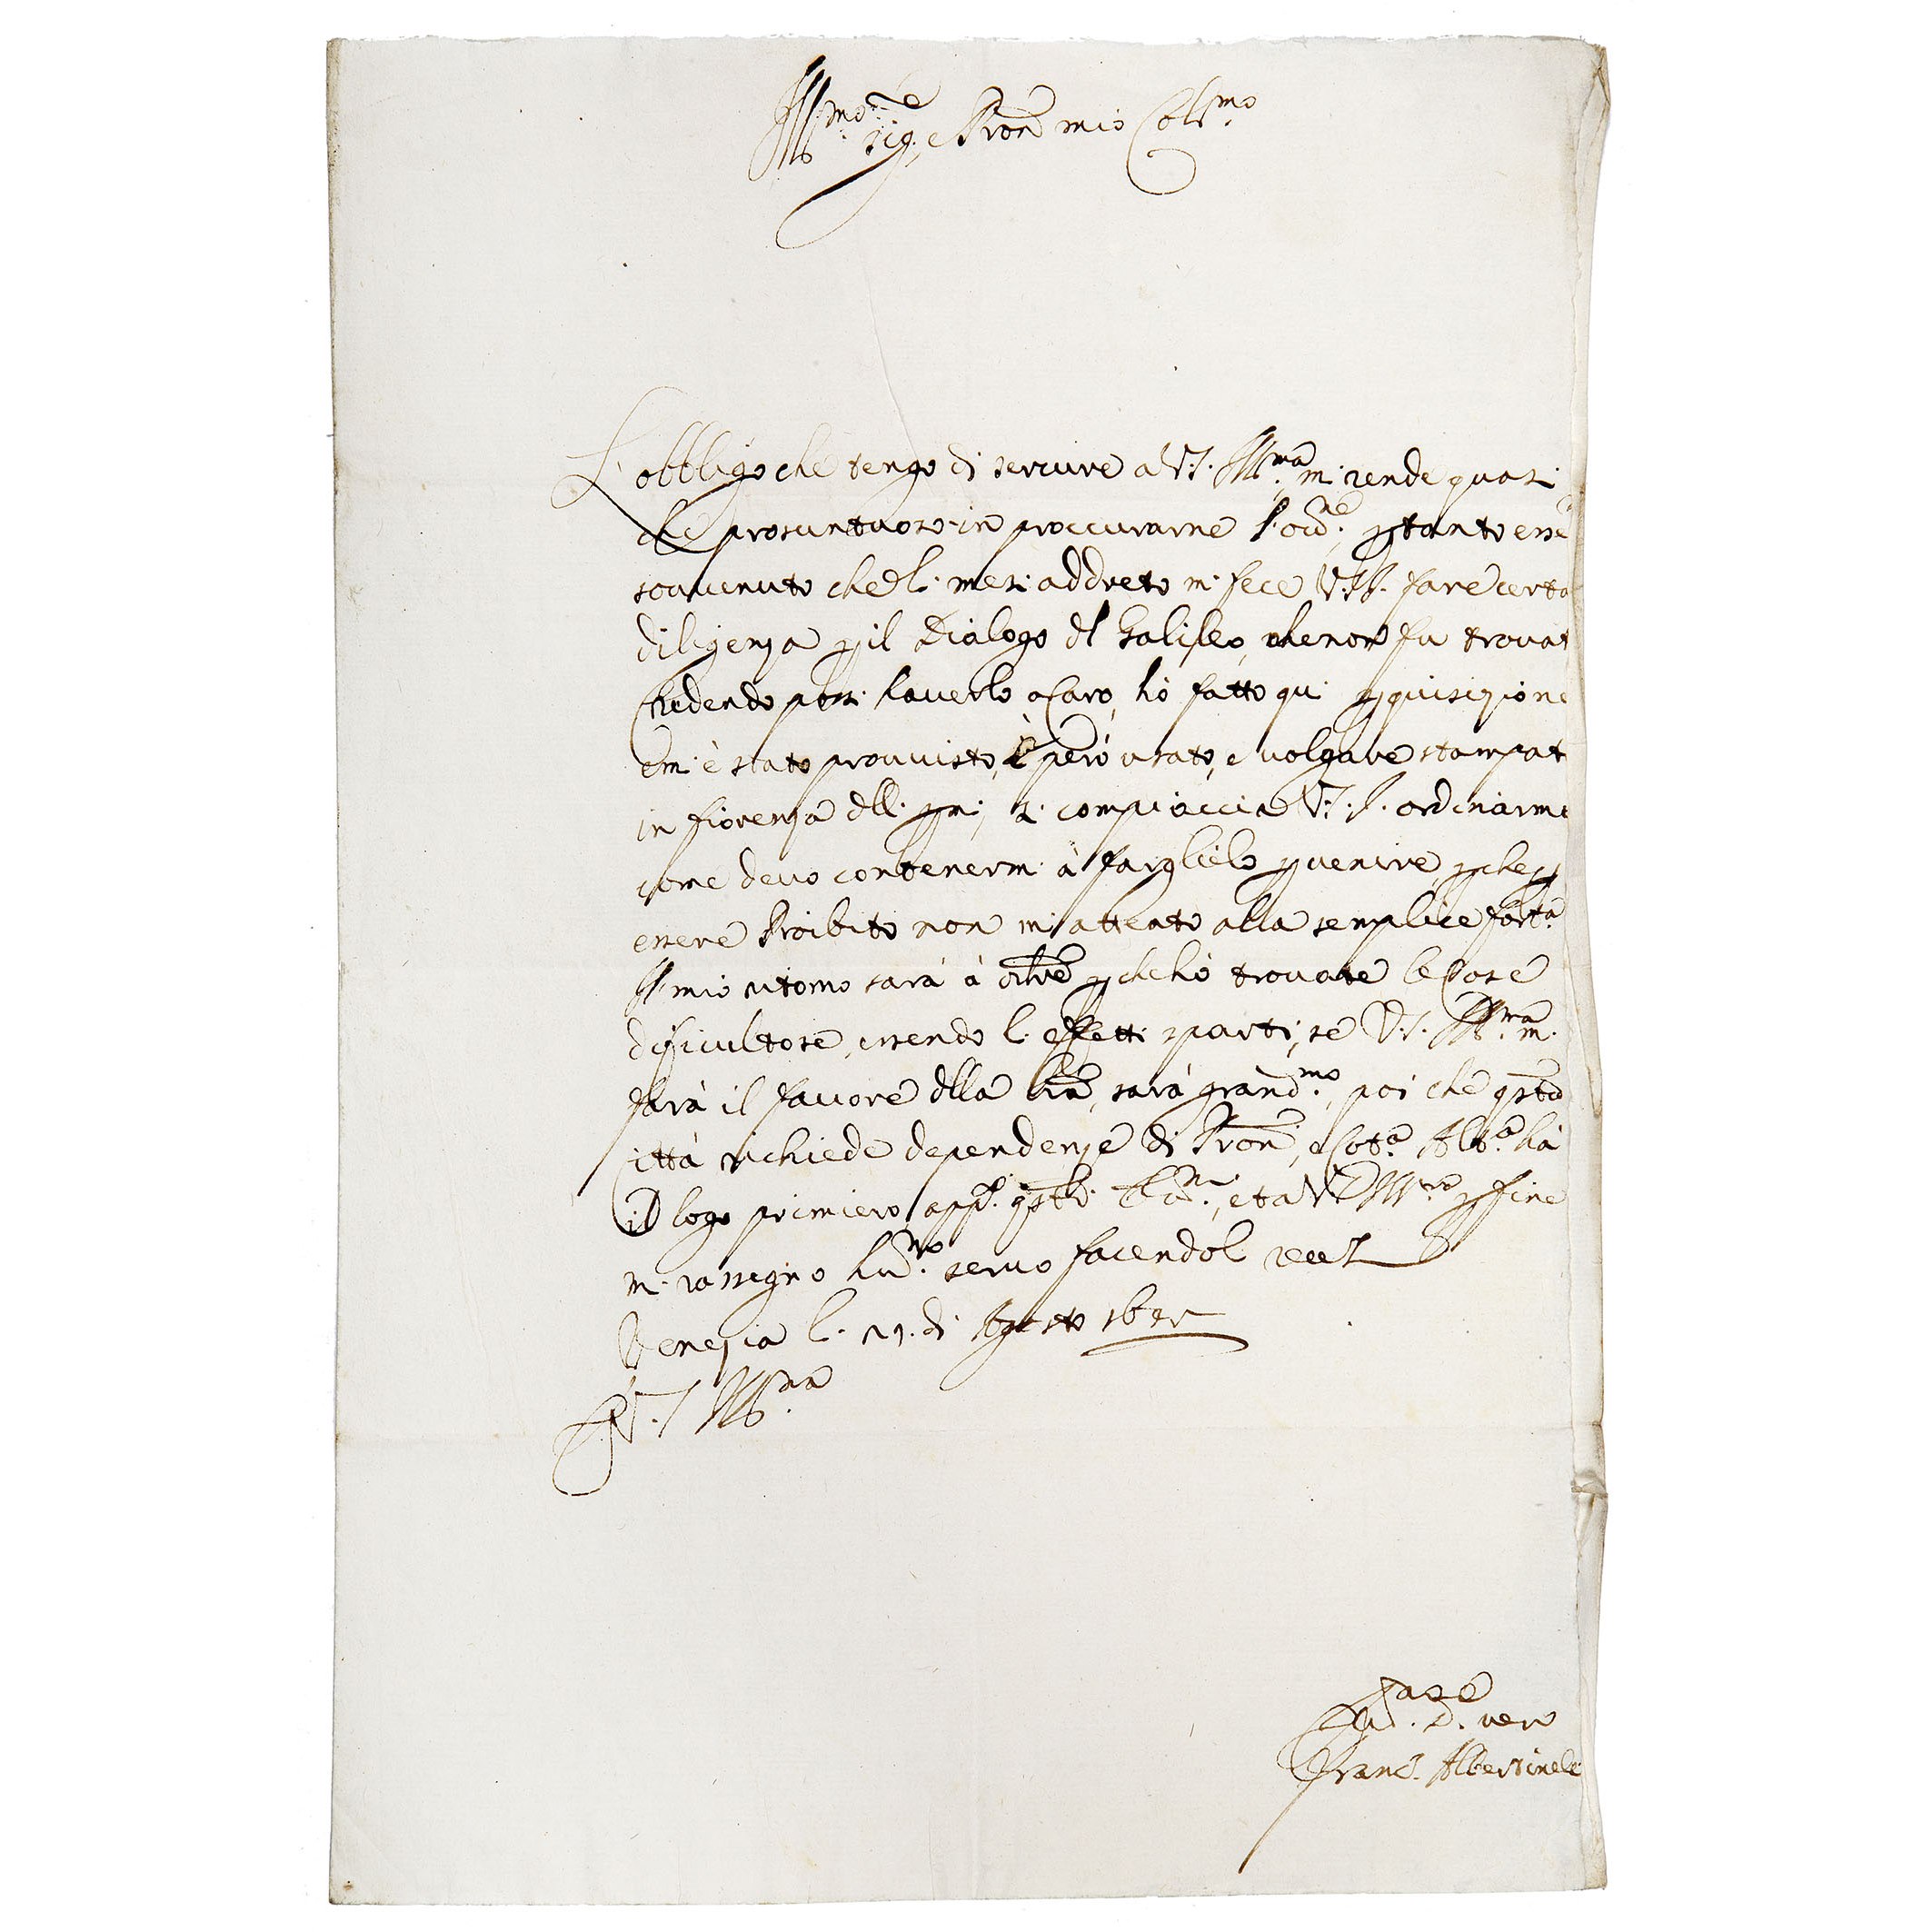 Ill.mo Sig.re e Pron mio Coll.mo
L'obbligo che tengo di servire a V.S. Ill.ma mi rende quasi
che prosuntuoso in proccurarne l'ord.ne, p tanto esse
souvenuto che li mesi addreto mi fece V.S.I. fare certa
diligenza p il Dialogo dl Galileo, che non fu trovat
Credendo possi haverlo a Caro, hò fatto qui pquisizione
e mi è stato provvisto, è però usato, e volgare stampat
in fiorenza dlli pmi, si compiaccia V.S.I. ordinarmi
come devo contenermi à farglielo pvenire, pche p
essere Proibito non mi attento alla semplice
Il mio ritorno sarà à p che hò trovate le Cose
dificultose, essendo li effetti sparti, se V.S. Ill.ma mi
farà il favore dlla sarà grand.mo, poi che qsta
Città richiede dependenze di Pron, e Cot.a Alt.a hà
il logo primiero, app.o qsti et a V.S. Ill.ma p fine
mi rassegno hu.mo servo facendoli
Venezia li di Agosto
D V.S. Ill.ma
D. vero
Franc.o Albertinelli